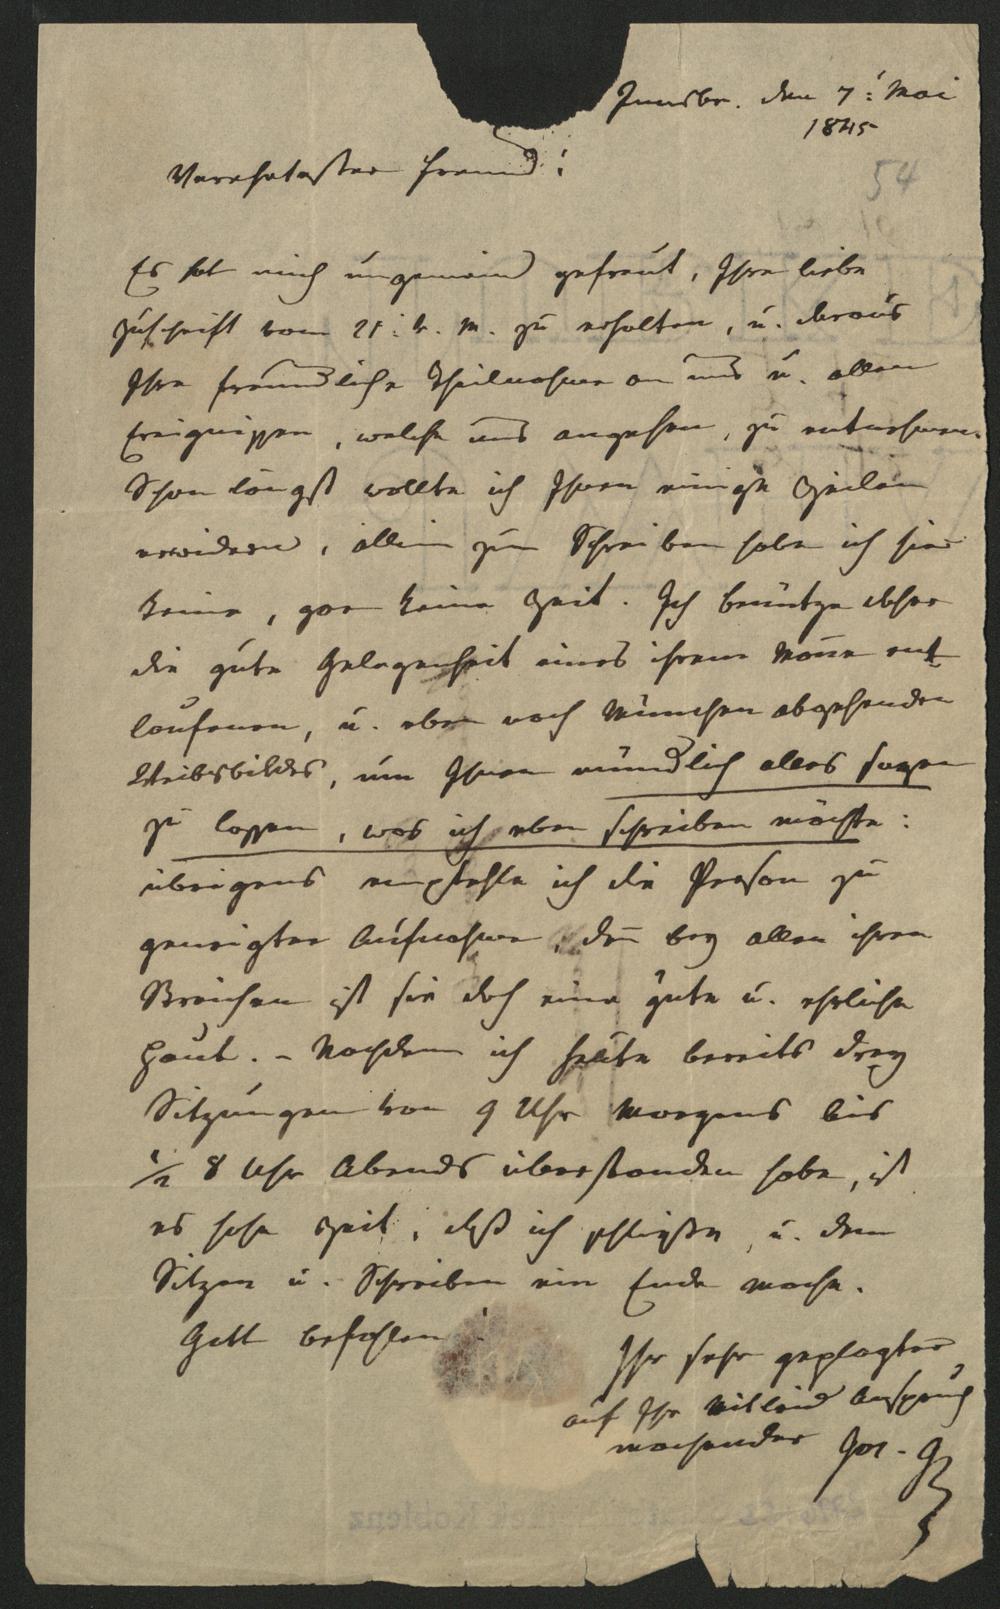 Innsbr. den 7: Mai
1845
54
Verehrtester Freund!
Es hat mich ungemein gefreut, Ihre liebe
Zuschrift vom 21: v. M. zu erhalten, u. daraus
Ihre freundliche Theilnahme an uns u. allen
Ereignissen, welche uns angehen, zu entnehmen.
Schon längst wollte ich Ihnen einige Zeilen
erwidern, allein zum Schreiben habe ich hier
keine, gar keine Zeit. Ich benütze daher
die gute Gelegenheit eines ihrem Mann ent
laufenen, u. eben nach München abgehenden
Weibsbildes, um Ihnen mündlich alles sagen
zu lassen, was ich eben schreiben möchte:
übrigens empfehle ich die Person zu
geneigter Aufnahme, den bey allen ihren
Streichen ist sie doch eine gute u. ehrliche
Haut. – Nachdem ich heute bereits drey
Sitzungen von 9 Uhr Morgens bis
1/2 8 Uhr Abends überstanden habe, ist
es hohe Zeit, daß ich schließe, u. dem
Sitzen u. Schreiben ein Ende mache.
Gott befohlen!
Ihr sehr geplagter,
auf Ihr Mitleid Anspruch
machender Jos. G